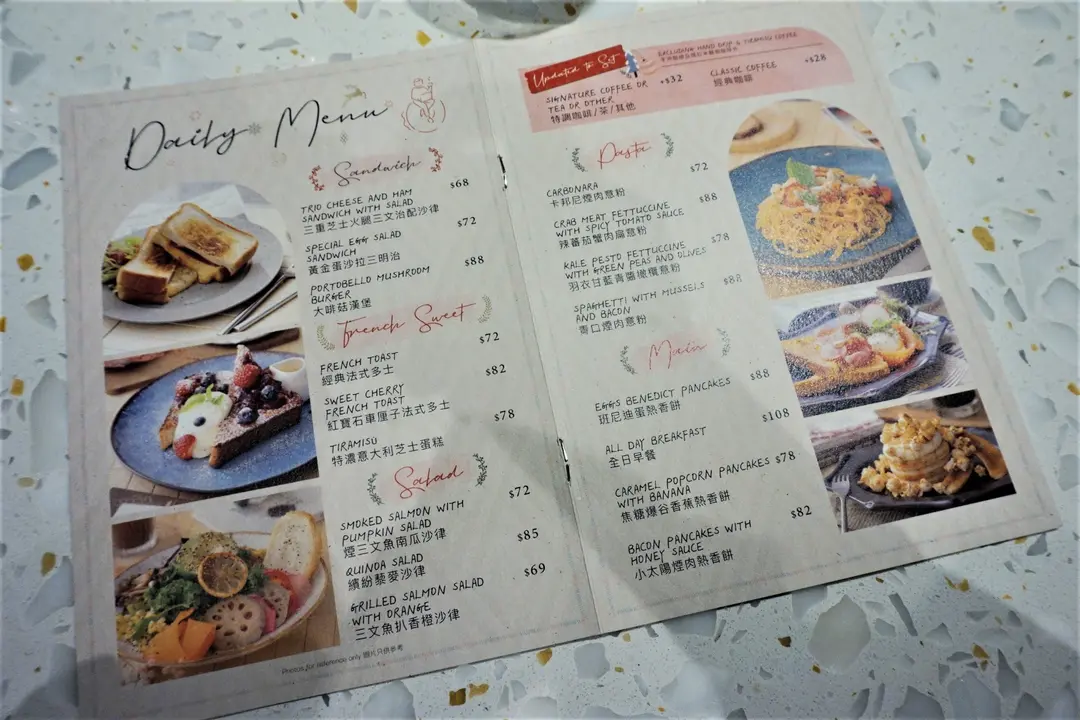 Daily Menu
Sandwich
TRIO CHEESE AND HAM
SANDWICH WITH SALAD
三重芝士火腿三文治配沙律
$68
SPECIAL EGG SALAD
SANDWICH
黃金蛋沙拉三明治
$72
PORTOBELLO MUSHROOM
BURGER
大啡菇漢堡
$88
French Sweet
FRENCH TOAST
經典法式多士
$72
SWEET CHERRY
FRENCH TOAST
紅寶石車厘子法式多士
$82
TIRAMISU
特濃意大利芝士蛋糕
$78
Salad
SMOKED SALMON WITH
PUMPKIN SALAD
煙三文魚南瓜沙律
$72
QUINOA SALAD
繽紛藜麥沙律
$85
GRILLED SALMON SALAD
WITH ORANGE
三文魚扒香橙沙律
$69
Photos for reference only 圖片只供參考
Updated to Set
EXCLUDING HAND DRIP & TIRAMISU COFFEE
SIGNATURE COFFEE OR
TEA OR OTHER
特調咖啡/茶/其他
+$32
CLASSIC COFFEE
經典咖啡
+$28
Pasta
CARBONARA
卡邦尼煙肉意粉
$72
CRAB MEAT FETTUCCINE
WITH SPICY TOMATO SAUCE
辣番茄蟹肉扁意粉
$88
KALE PESTO FETTUCCINE
WITH GREEN PEAS AND OLIVES
羽衣甘藍青醬橄欖意粉
$78
SPAGHETTI WITH MUSSELS
AND BACON
青口煙肉意粉
$88
Main
EGGS BENEDICT PANCAKES
班尼迪蛋熱香餅
$88
ALL DAY BREAKFAST
全日早餐
$108
CARAMEL POPCORN PANCAKES
WITH BANANA
焦糖爆谷香蕉熱香餅
$78
BACON PANCAKES WITH
HONEY SAUCE
小太陽煙肉熱香餅
$82